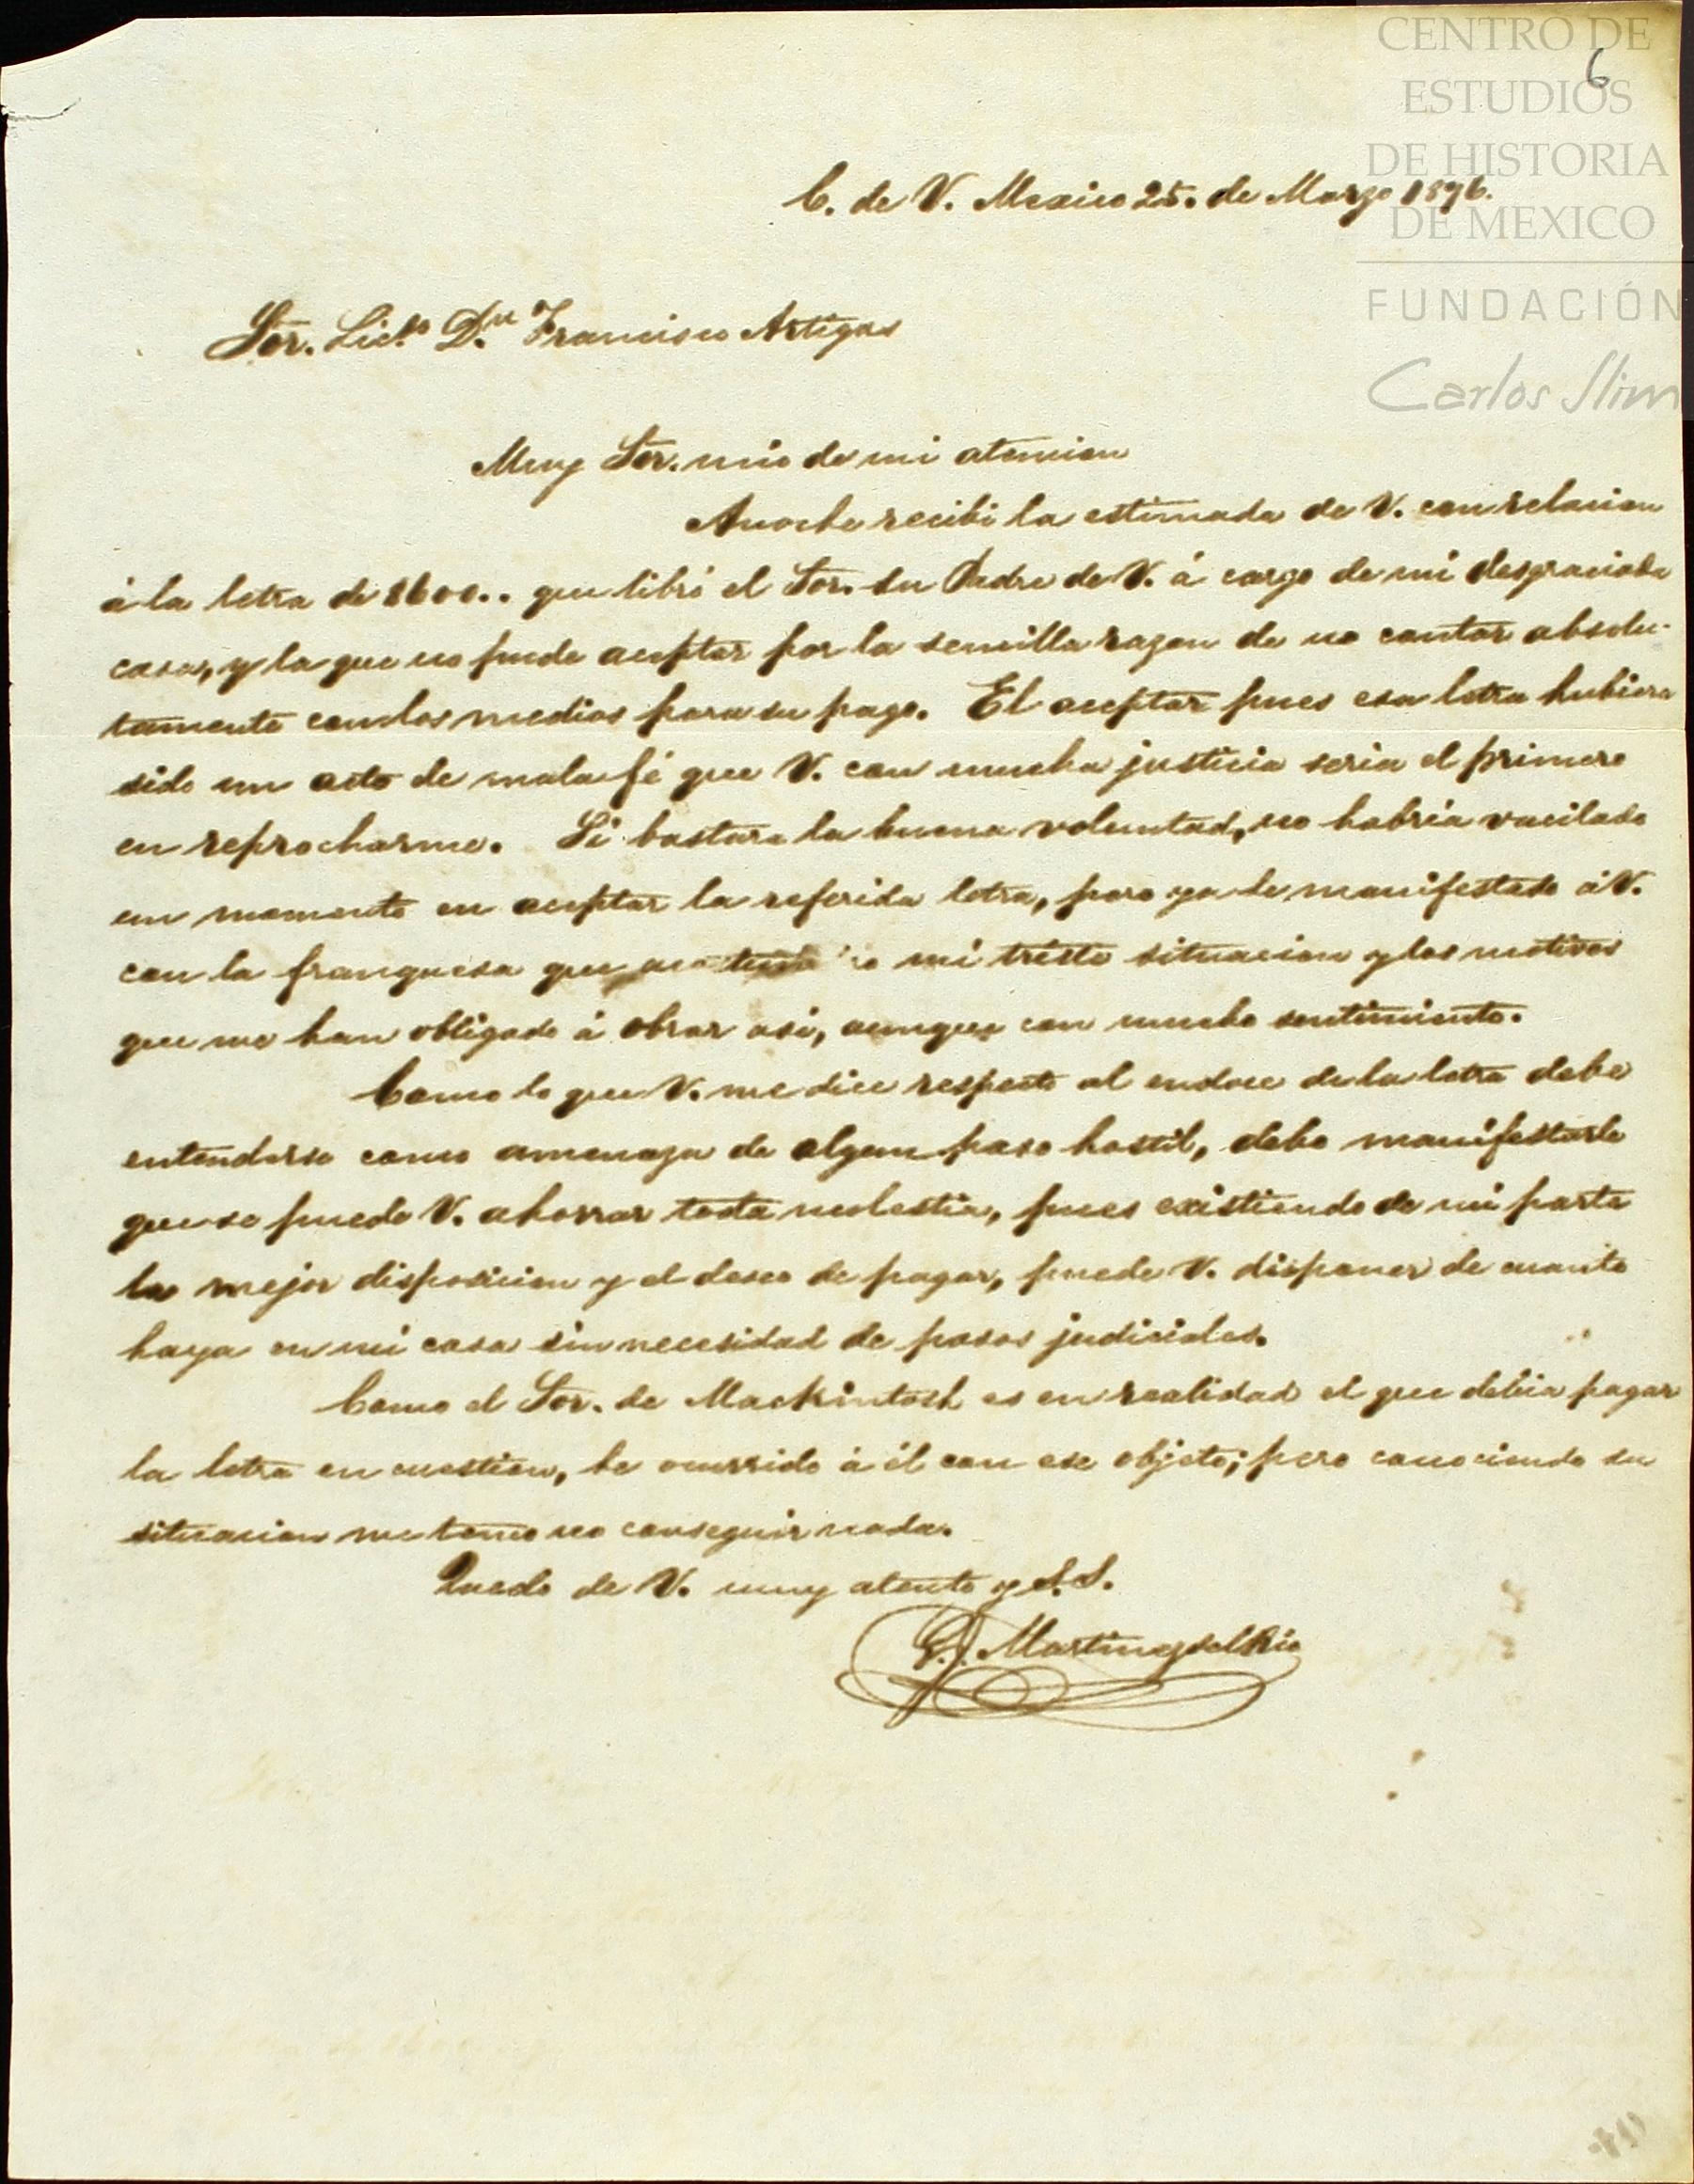 CENTRO DE
ESTUDIOS
DE HISTORIA
DE MEXICO
FUNDACIÓN
Carlos Slim
6
C. de V. Mexico 25. de Marzo 1896.
Sor. Lic.do D.n Francisco Artigas
Muy Sor. mio de mi atencion
Anoche recibi la estimada de V. con relacion
á la letra de $600.. que libró el Sor. su Padre de V. á cargo de mi desgraciada
casa, y la que no pude aceptar por la sencilla razon de no contar absolu-
tamente con los medios para su pago. El aceptar pues esa letra hubiera
sido un acto de mala fé que V. con mucha justicia seria el primero
en reprocharme. Si bastara la buena voluntad, no habria vacilado
un momento en aceptar la referida letra, pero ya he manifestado á V.
con la franquesa que mi triste situacion y los motivos
que me han obligado á obrar asi, aunque con mucho sentimiento.
Como lo que V. me dice respecto al endose de la letra debe
entenderse como amenaza de algun paso hostil, debo manifestarle
que se puede V. ahorrar toda molestia, pues existiendo de mi parte
la mejor disposicion y el deseo de pagar, puede V. disponer de cuanto
haya en mi casa sin necesidad de pasos judiciales.
Como el Sor. de Mackintosh es en realidad el que debia pagar
la letra en cuestion, he ocurrido á él con ese objeto; pero conociendo su
situacion me temo no conseguir nada.
Quedo de V. muy atento y S.S.
Martinez del Rio